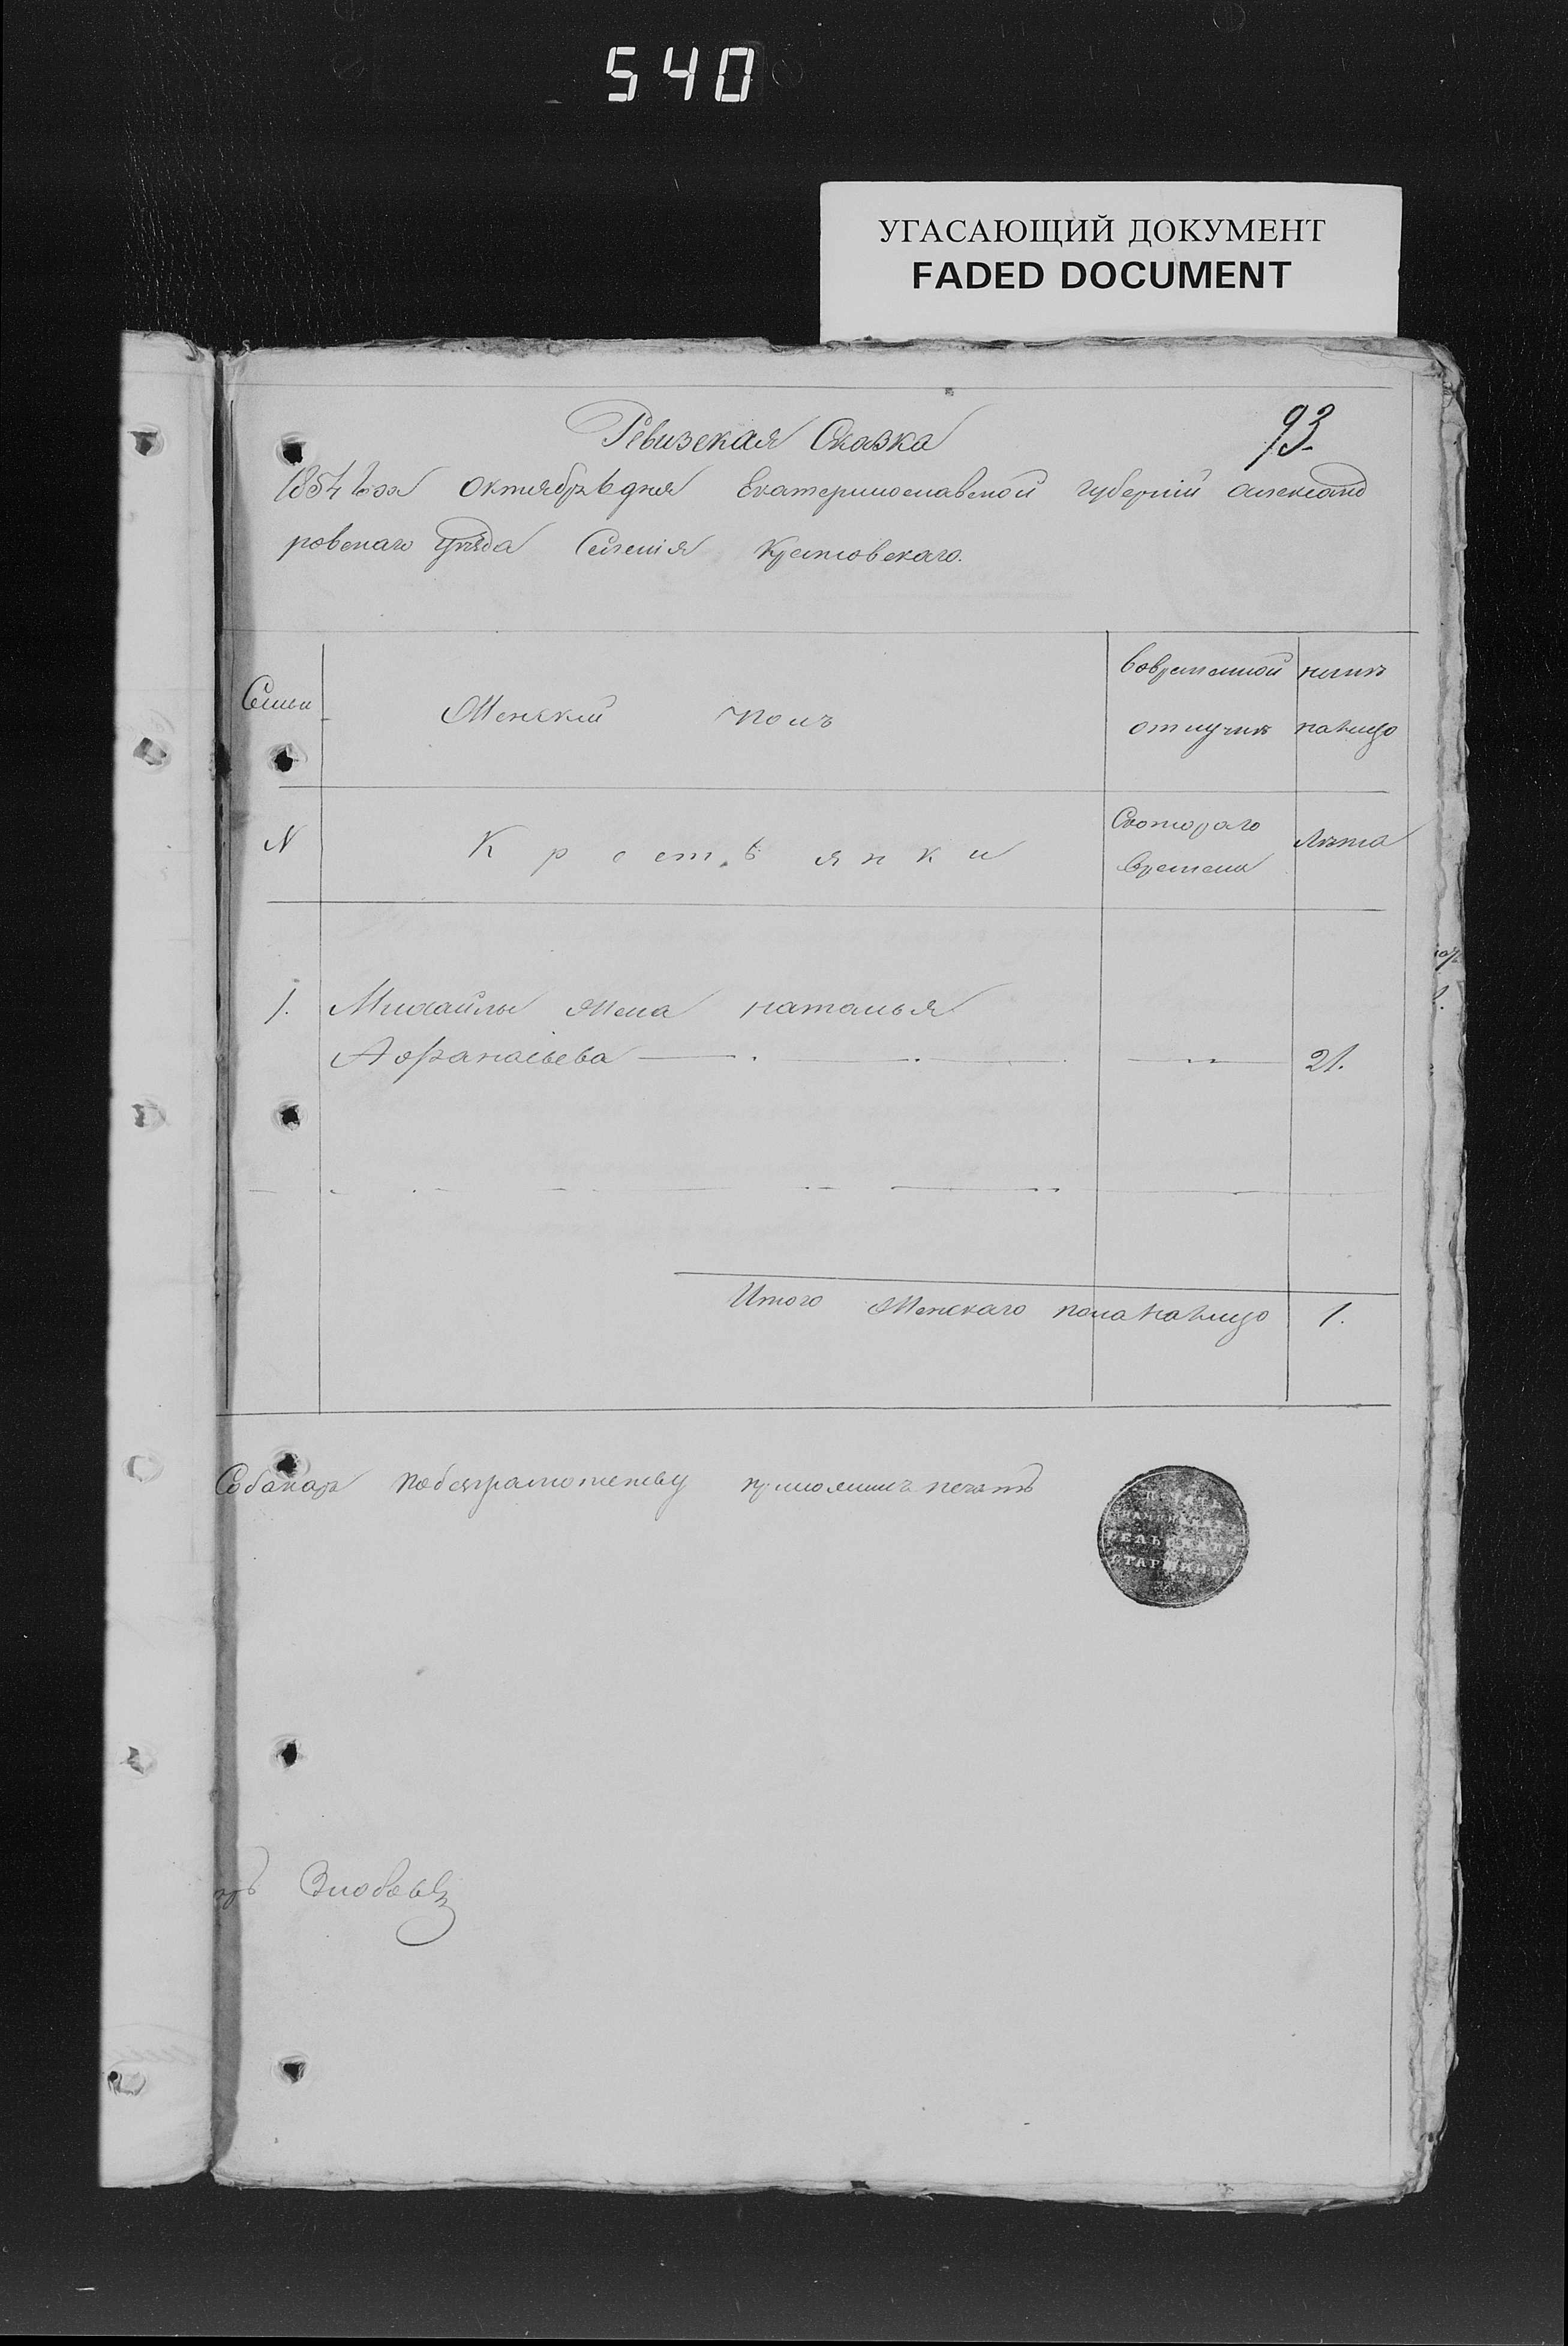 540
УГАСАЮЩИЙ ДОКУМЕНТ
FADED DOCUMENT
93
Ревизская Сказка
1854 года октября дня Екатеринославской губернии александ
ровскаго уѣзда Селения
Семьи
Женский полъ
вовременной отлучкѣ
нынѣ налицо
N
Крестьянки
Скотораго времена
лѣта
1. Михайлы жена наталья
Афанасьева 21.
Итого женскаго пола налицо 1.
побезграмотству печать
СТАРШИНЫ